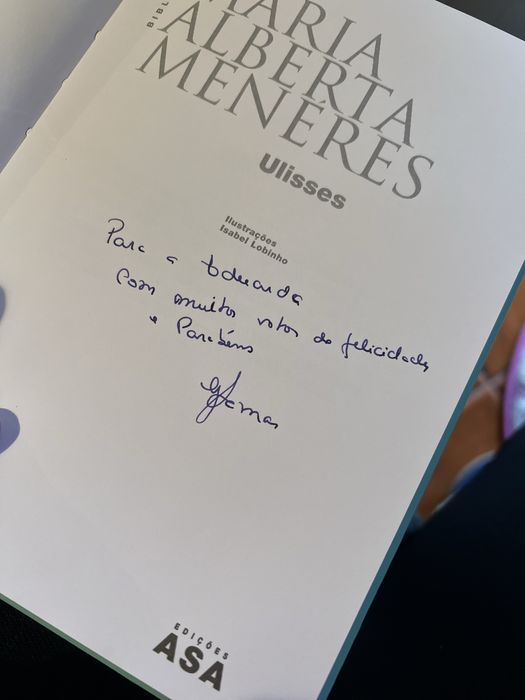 BIBL
MARIA
ALBERTA
MENÉRES
Ulisses
Ilustrações
Isabel Lobinho
Para a Eduarda
Com muitos votos de felicidades
e Parabéns
EDIÇÕES
ASA